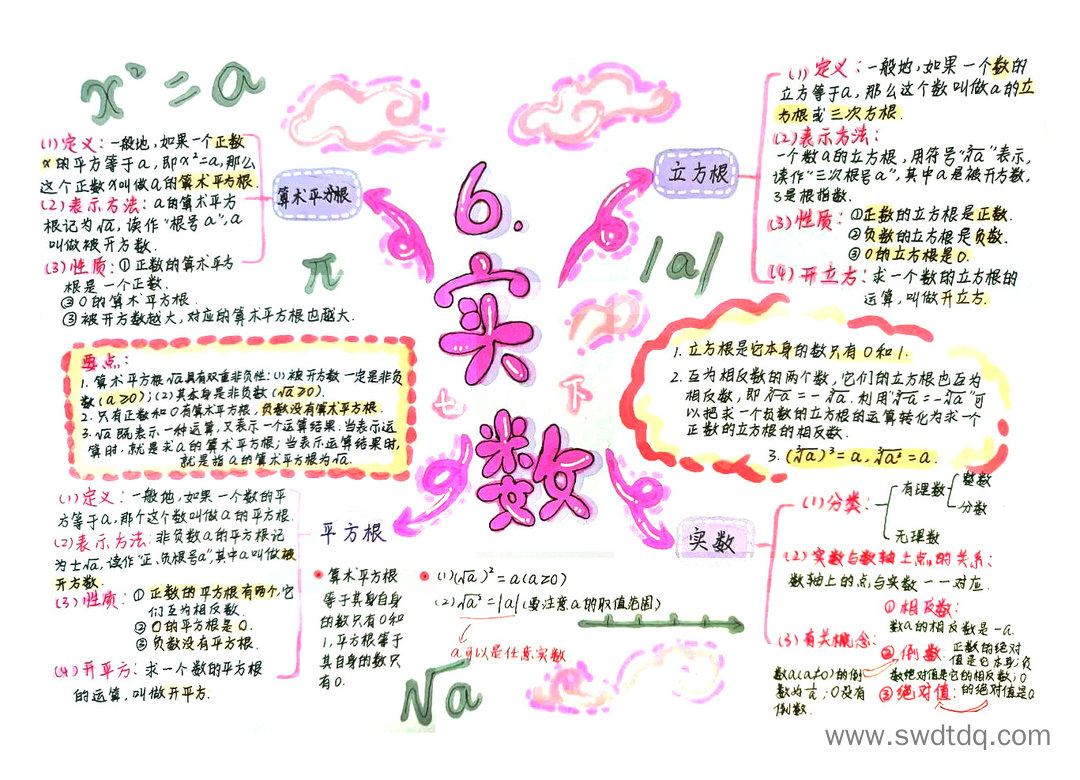 x²=a
(1)定义：一般地，如果一个正数
x的平方等于a，即x²=a，那么
这个正数x叫做a的算术平方根.
(2)表示方法：a的算术平方
根记为√a，读作“根号a”，a
叫做被开方数.
(3)性质：①正数的算术平方
根是一个正数.
②0的算术平方根.
③被开方数越大，对应的算术平方根也越大.
算术平方根
π
6.
实
数
七
下
立方根
|a|
(1)定义：一般地，如果一个数的
立方等于a，那么这个数叫做a的立
方根或三次方根.
(2)表示方法：
一个数a的立方根，用符号“∛a”表示，
读作“三次根号a”，其中a是被开方数，
3是根指数.
(3)性质：①正数的立方根是正数.
②负数的立方根是负数.
③0的立方根是0.
(4)开立方：求一个数的立方根的
运算，叫做开立方.
要点：
1.算术平方根√a具有双重非负性：(1)被开方数一定是非负
数(a≥0)；(2)其本身是非负数(√a≥0).
2.只有正数和0有算术平方根，负数没有算术平方根.
3.√a既表示一种运算，又表示一个运算结果.当表示运
算时，就是求a的算术平方根；当表示运算结果时，
就是指a的算术平方根为√a.
1.立方根是它本身的数只有0和1.
2.互为相反数的两个数，它们的立方根也互为
相反数，即∛-a=-∛a.利用“∛-a=-∛a”可
以把求一个负数的立方根的运算转化为求一个
正数的立方根的相反数.
3.(∛a)³=a，∛a³=a.
(1)定义：一般地，如果一个数的平
方等于a，那个这个数叫做a的平方根.
(2)表示方法：非负数a的平方根记
为±√a，读作“正、负根号a”，其中a叫做被
开方数.
(3)性质：①正数的平方根有两个，它
们互为相反数.
②0的平方根是0.
③负数没有平方根.
(4)开平方：求一个数的平方根
的运算，叫做开平方.
平方根
算术平方根
等于其身自身
的数只有0和
1，平方根等于
其自身的数只
有0.
(1)(√a)²=a(a≥0)
(2)√a²=|a|(要注意a的取值范围)
a可以是任意实数
√a
实数
(1)分类：
有理数
整数
分数
无理数
(2)实数与数轴上点的关系：
数轴上的点与实数一一对应.
(3)有关概念：
①相反数：
数a的相反数是-a.
②倒数
数a(a≠0)的倒
数为1/a；0没有
倒数.
③绝对值：
正数的绝对
值是它本身；负
数绝对值是它的相反数；0
的绝对值是0
www.swdtdq.com